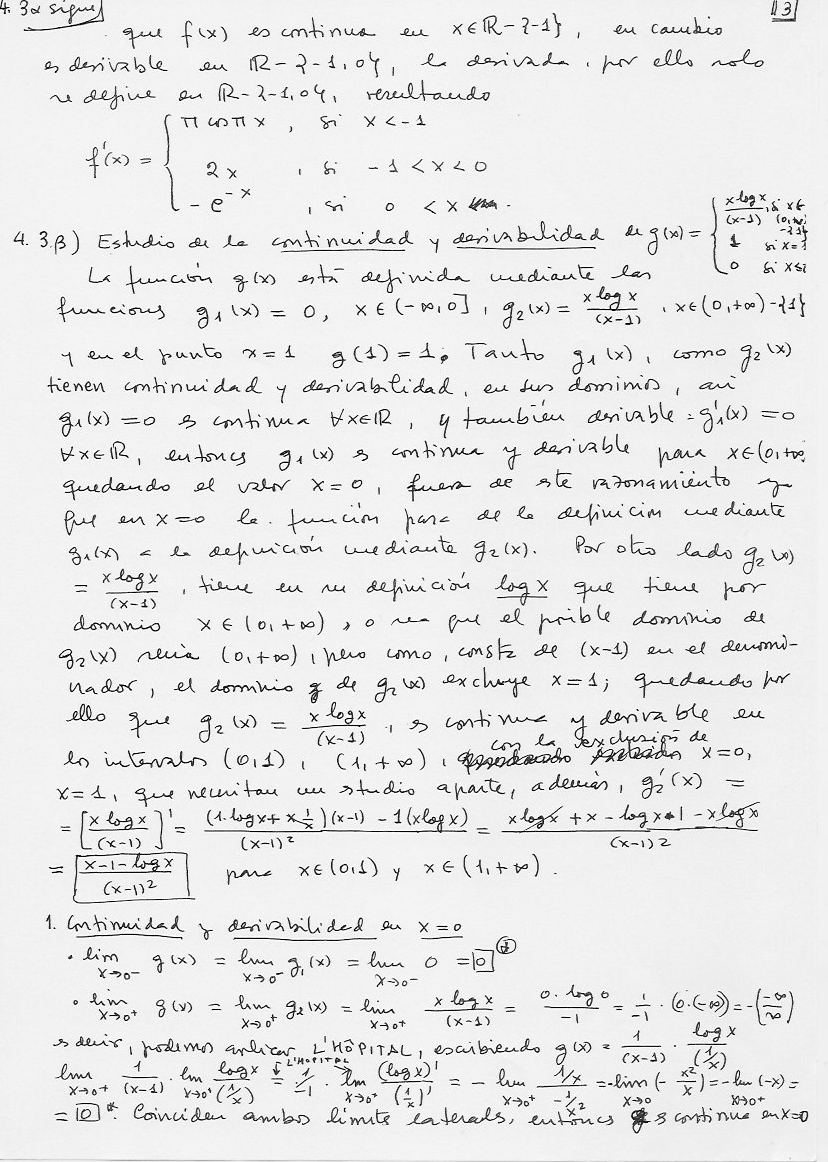 4. 3α sigue] 13
que f(x) es continua en x∈ℝ-{-1}, en cambio
es derivable en ℝ-{-1,0}, la derivada, por ello solo
se define en ℝ-{-1,0}, resultando
f'(x) = { π cos πx , si x < -1
2x , si -1 < x < 0
-e^{-x} , si 0 < x
4. 3.β) Estudio de la continuidad y derivabilidad de g(x) = { x log x/(x-1), si x∈(0,+∞)-{1}
1 si x=1
0 si x≤
La función g(x) está definida mediante las
funciones g₁(x) = 0, x∈(-∞,0], g₂(x) = x log x/(x-1), x∈(0,+∞)-{1}
y en el punto x=1 g(1)=1. Tanto g₁(x), como g₂(x)
tienen continuidad y derivabilidad, en sus dominios, así
g₁(x)=0 es continua ∀x∈ℝ, y también derivable: g₁'(x)=0
∀x∈ℝ, entonces g₁(x) es continua y derivable para x∈(0,+∞,
quedando el valor x=0, fuera de este razonamiento ya
que en x=0 la función pasa de la definición mediante
g₁(x) a la definición mediante g₂(x). Por otro lado g₂(x)
= x log x/(x-1), tiene en su definición log x que tiene por
dominio x∈(0,+∞), o sea que el posible dominio de
g₂(x) sería (0,+∞), pero como, consta de (x-1) en el denomi-
nador, el dominio de g₂(x) excluye x=1; quedando por
ello que g₂(x) = x log x/(x-1), es continua y derivable en
los intervalos (0,1), (1,+∞), con la exclusión de x=0,
x=1, que necesitan un estudio aparte, además, g₂'(x) =
= [x log x/(x-1)]' = ((1·log x + x 1/x)(x-1) - 1(x log x))/(x-1)² = (x log x + x - log x - 1 - x log x)/(x-1)²
= (x-1-log x)/(x-1)² para x∈(0,1) y x∈(1,+∞).
1. Continuidad y derivabilidad en x=0
• lim x→0⁻ g(x) = lim x→0⁻ g₁(x) = lim x→0⁻ 0 = 0 *
• lim x→0⁺ g(x) = lim x→0⁺ g₂(x) = lim x→0⁺ x log x/(x-1) = 0·log 0/-1 = 1/-1 · (0·(-∞)) = -(-∞/∞)
es decir, podemos aplicar L'HÔPITAL, escribiendo g(x) = 1/(x-1) · log x/(1/x)
lim x→0⁺ 1/(x-1) · lim x→0⁺ log x/(1/x) = L'HOPITAL 1/-1 · lim x→0⁺ (log x)'/(1/x)' = - lim x→0⁺ (1/x)/(-1/x²) = -lim x→0 (-x²/x) = -lim x→0⁺ (-x) =
= 0 *. Coinciden ambos límites laterales, entonces g es continua en x=0